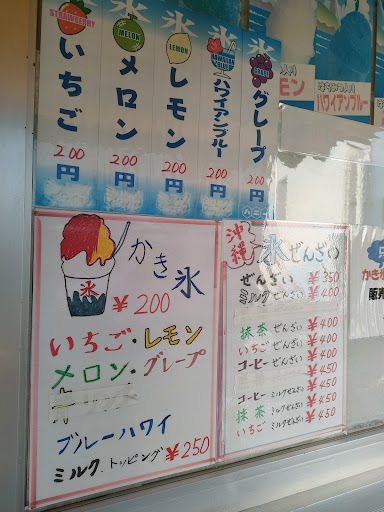 氷
STRAWBERRY
いちご
200
円
氷
MELON
メロン
200
円
氷
LEMON
レモン
200
円
氷
HAWAIIAN BLUE
ハワイアンブルー
200
円
氷
GRAPE
グレープ
200
円
モン
ハワイアンブルー
氷
かき氷
¥200
いちご・レモン
メロン・グレープ
ブルーハワイ
ミルク.トッピング ¥250
沖縄 氷ぜんざい
ぜんざい ¥350
ミルクぜんざい ¥400
抹茶ぜんざい ¥400
いちごぜんざい ¥400
コーヒーぜんざい ¥400
¥450
コーヒーミルクぜんざい ¥450
抹茶ミルクぜんざい ¥450
いちごミルクぜんざい ¥450
かき
販売